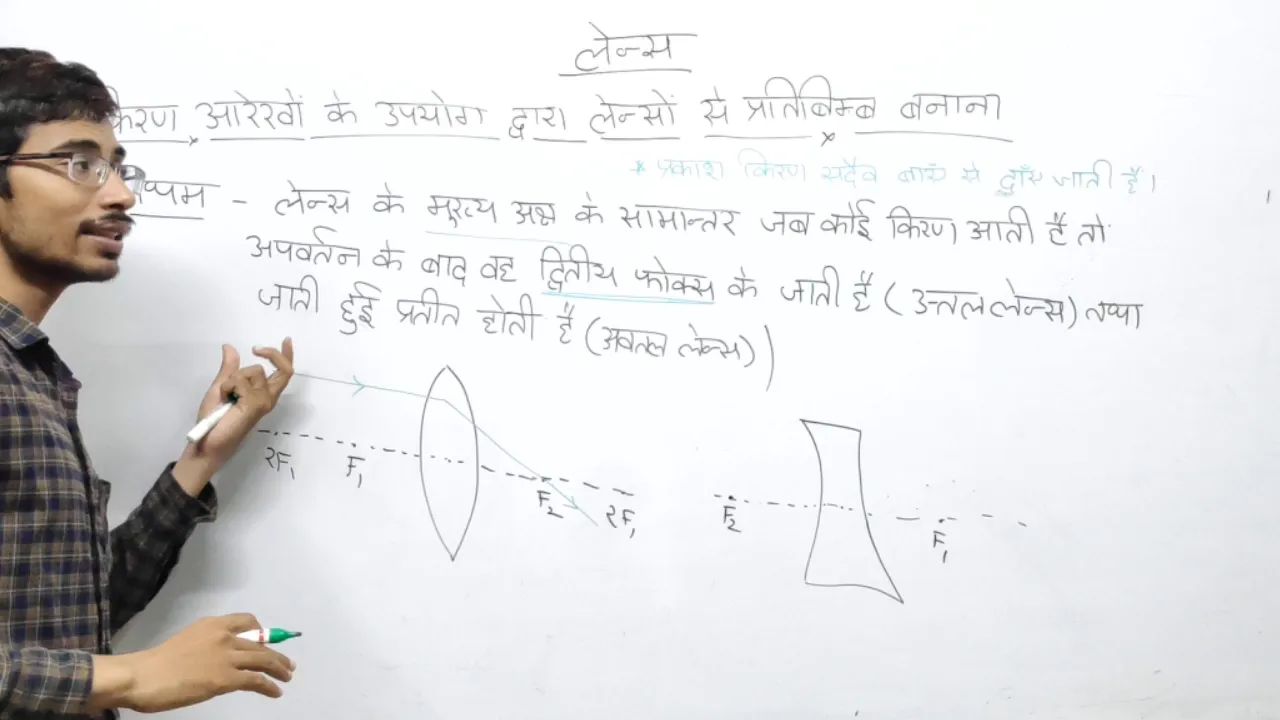 लेन्स
किरण आरेखों के उपयोग द्वारा लेन्सों से प्रतिबिम्ब बनाना
* प्रकाश किरण सदैव बाएँ से दाँए जाती है।
- लेन्स के मुख्य अक्ष के सामान्तर जब कोई किरण आती है तो
अपवर्तन के बाद वह द्वितीय फोकस के जाती है (उत्तल लेन्स) तथा
जाती हुई प्रतीत होती है (अवतल लेन्स))
2F₁ F₁ F₂ 2F₁
F₂ F₁